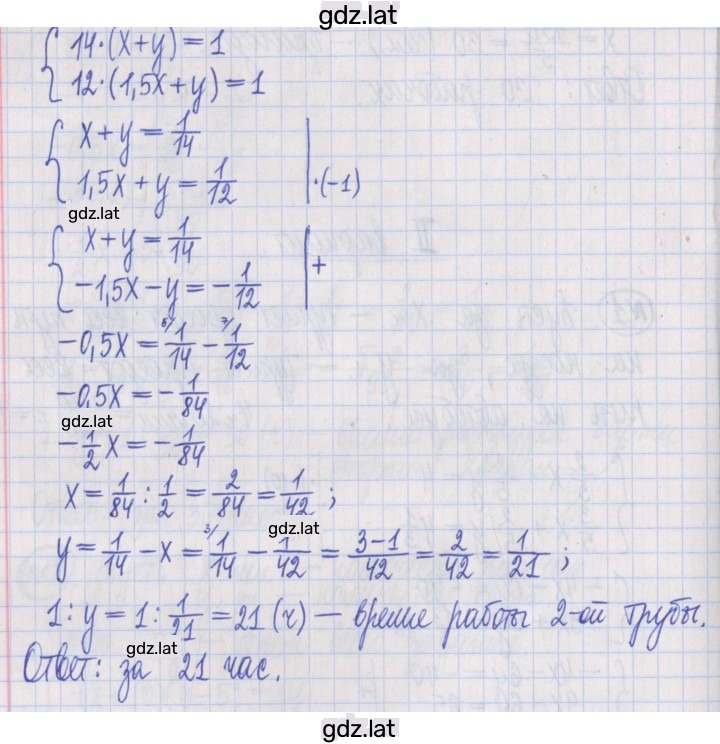 gdz.lat
{ 14·(x+y)=1
12·(1,5x+y)=1
{ x+y=1/14
1,5x+y=1/12 | ·(-1)
gdz.lat
{ x+y=1/14
-1,5x-y=-1/12 | +
-0,5x=⁶⁄1/14-⁷⁄1/12
-0,5x=-1/84
gdz.lat
-1/2x=-1/84
x=1/84:1/2=2/84=1/42;
gdz.lat
y=1/14-x=³⁄1/14-1/42=3-1/42=2/42=1/21;
1:y=1:1/21=21(ч) – время работы 2-ой трубы.
gdz.lat
Ответ: за 21 час.
gdz.lat